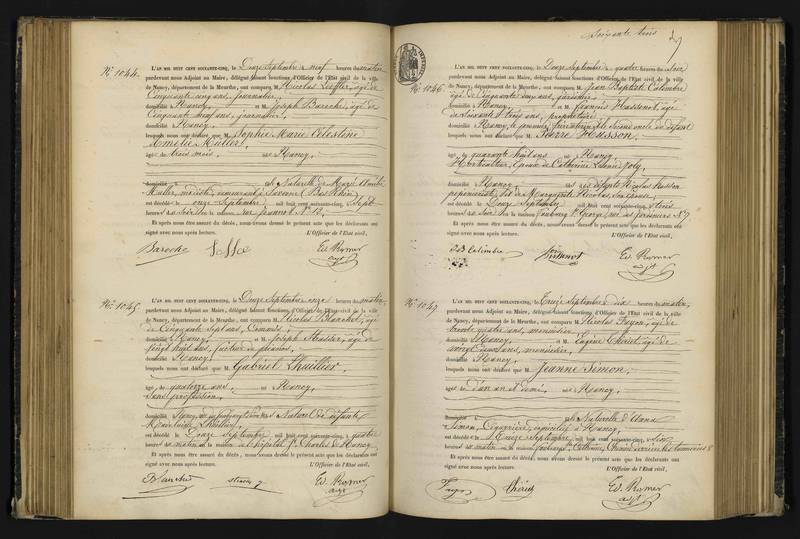 No. 1044.
L'AN MIL HUIT CENT SOIXANTE-CINQ, le Douze Septembre à neuf heures du matin
pardevant nous Adjoint au Maire, délégué faisant fonctions d'Officier de l'Etat civil de la ville
de Nancy, département de la Meurthe, ont comparu M. Nicolas Loeffler, âgé de
Cinquante cinq ans, journalier,
domicilié à Nancy, et M. Joseph Baroche, âgé de
Cinquante neuf ans, journalier,
domicilié à Nancy,
lesquels nous ont déclaré que M. Sophie Marie Célestine
Amélie Müller,
âgé de trois mois, né à Nancy,
domicilié fille Naturelle de Marie Amélie
Müller, modiste, demeurant à Saverne (Bas Rhin),
est décédé le onze Septembre mil huit cent soixante-cinq, à Sept
heures du soir en la maison rue Jeannot No. 12.
Et après nous être assuré du décès, nous avons dressé le présent acte que les déclarants ont
signé avec nous après lecture. L'Officier de l'Etat civil,
Baroche Ed. Romer
adjt
No. 1045
L'AN MIL HUIT CENT SOIXANTE-CINQ, le Douze Septembre à onze heures du matin,
pardevant nous Adjoint au Maire, délégué faisant fonctions d'Officier de l'Etat civil de la ville
de Nancy, département de la Meurthe, ont comparu M. Nicolas Blanchet, âgé
de Cinquante Sept ans, Commis,
domicilié à Nancy, et M. Joseph Masser, âgé de
vingt huit ans, facteur de pianos,
domicilié à Nancy,
lesquels nous ont déclaré que M. Gabriel Lhuillier,
âgé de quatorze ans, né à Nancy,
Sans profession,
domicilié à Nancy, fils Naturel de défunte
Lhuillier,
est décédé le Douze Septembre mil huit cent soixante-cinq, à quatre
heures du matin en la maison à l'hôpital St. Charles de Nancy
Et après nous être assuré du décès, nous avons dressé le présent acte que les déclarants ont
signé avec nous après lecture. L'Officier de l'Etat civil,
Blanchet Ed. Romer
adjt
Soixante trois
No. 1046
L'AN MIL HUIT CENT SOIXANTE-CINQ, le Douze Septembre à quatre heures du soir
pardevant nous Adjoint au Maire, délégué faisant fonctions d'Officier de l'Etat civil de la ville
de Nancy, département de la Meurthe, ont comparu M. Jean Baptiste Colombe
âgé de Cinquante cinq ans, jardinier,
domicilié à Nancy, et M. François Hussenot, âgé
de Soixante Treize ans, propriétaire,
domicilié à Nancy, le premier
lesquels nous ont déclaré que M. Pierre Husson,
âgé de quarante huit ans né à Nancy,
Horticulteur, Epoux de Catherine Joly,
domicilié à Nancy, fils des défunts Nicolas Husson
pépiniériste, et de Marguerite Nicolas,
est décédé le Douze Septembre mil huit cent soixante-cinq, à trois
heures du soir en la maison faubourg St. George, rue des jardiniers No. 7
Et après nous être assuré du décès, nous avons dressé le présent acte que les déclarants ont
signé avec nous après lecture. L'Officier de l'Etat civil,
Colombe Hussenot Ed. Romer
adjt
No. 1047
L'AN MIL HUIT CENT SOIXANTE-CINQ, le Treize Septembre à dix heures du matin,
pardevant nous Adjoint au Maire, délégué faisant fonctions d'Officier de l'Etat civil de la ville
de Nancy, département de la Meurthe, ont comparu M. Nicolas Fagon, âgé de
trente quatre ans, menuisier,
domicilié à Nancy, et M. Eugène Thiriet, âgé de
vingt deux ans, menuisier,
domicilié à Nancy,
lesquels nous ont déclaré que M. Jeanne Simon,
âgée de d'un an et demi, née à Nancy,
domicilié à fille Naturelle d'Anna
Simon, Couturière, domiciliée à Nancy,
est décédée le Treize Septembre, mil huit cent soixante-cinq, à
heures du matin en la maison faubourg St. Catherine,
Et après nous être assuré du décès, nous avons dressé le présent acte que les déclarants ont
signé avec nous après lecture. L'Officier de l'Etat civil,
Fagon Thiriet Ed. Romer
adjt